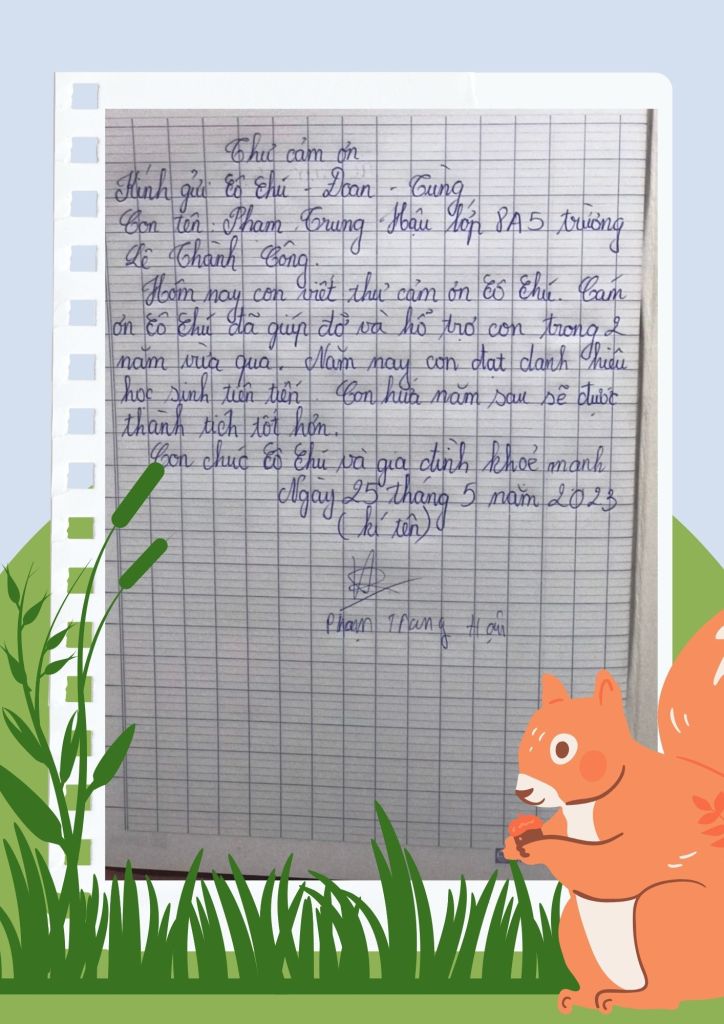 Thư cảm ơn
Kính gửi Cô Chú - Doan - Tùng
Con tên : Phạm Trung Hậu lớp 8A5 trường
Lê Thành Công.
Hôm nay con viết thư cảm ơn Cô Chú. Cảm
ơn Cô Chú đã giúp đỡ và hổ trợ con trong 2
năm vừa qua. Năm nay con đạt danh hiệu
học sinh tiên tiến. Con hứa năm sau sẽ được
thành tích tốt hơn.
Con chúc Cô Chú và gia đình khoẻ mạnh
Ngày 25 tháng 5 năm 2023
( kí tên)
Phạm Trung Hậu